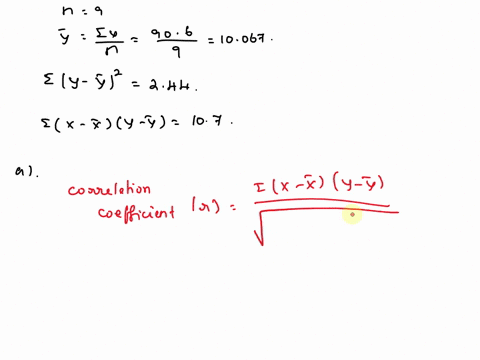 n = 9
ȳ = Σy/n = 90.6/9 = 10.067.
Σ(y-ȳ)² = 2.44.
Σ(x-x̄)(y-ȳ) = 10.7.
a).
correlation
coefficient (r) = Σ(x-x̄)(y-ȳ)/√